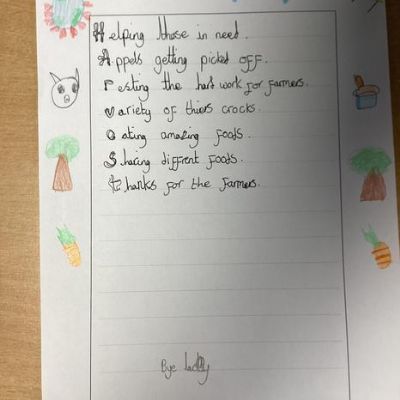 Helping those in need.
Appels getting picked off.
resting the hark work for farmers.
variety of thiers crocks.
eating amazing foods.
Sharing diffrent foods.
thanks for the farmers.
Bye